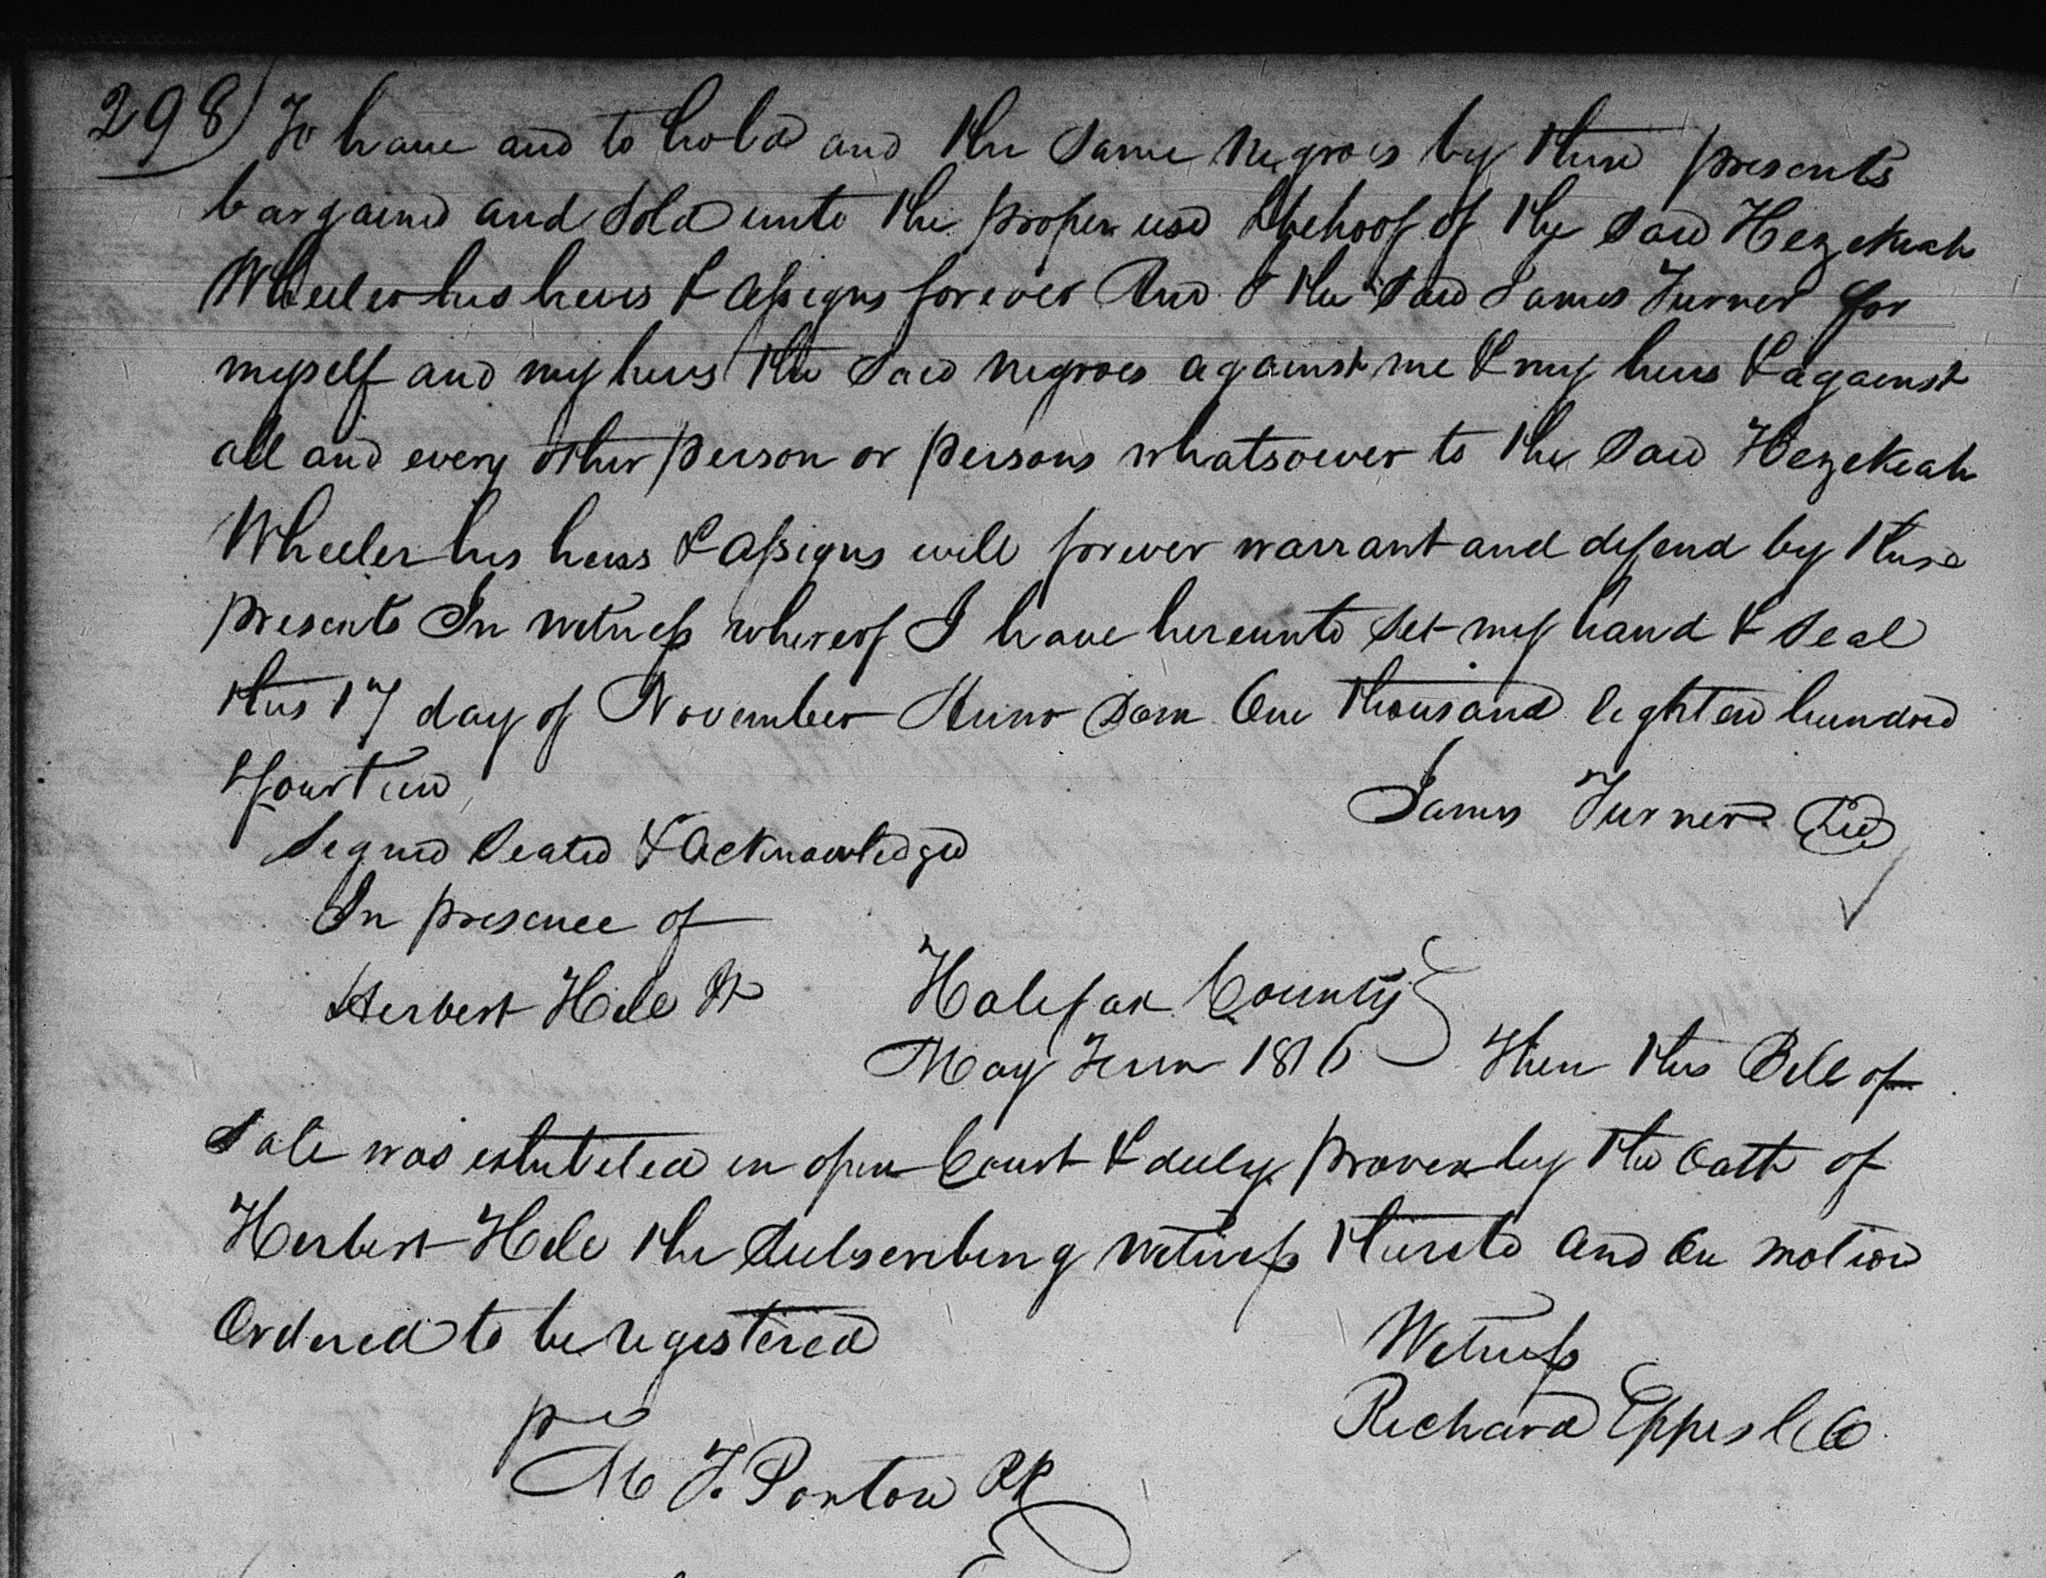 298) To have and to hold and the same negroes by these presents
bargained and sold unto the proper use & behoof of the said Hezekiah
Wheeler his heirs & assigns forever And I the said James Turner for
myself and my heirs the said negroes against me & my heirs & against
all and every other person or persons whatsoever to the said Hezekiah
Wheeler his heirs & assigns will forever warrant and defend by these
presents In witness whereof I have hereunto set my hand & seal
this 17 day of November Anno Dom One thousand eighteen hundred
& fourteen
James Turner
Signed Sealed & Acknowledged
In presence of
Herbert Hill Jr
Halifax County
May Term 1816 Then this Bill of
Sale was exhibited in open Court & duly proven by the Oath of
Herbert Hill the Subscribing witness thereto and on motion
Ordered to be registered
Witness
Richard Eppes CC
M T. Ponton PR